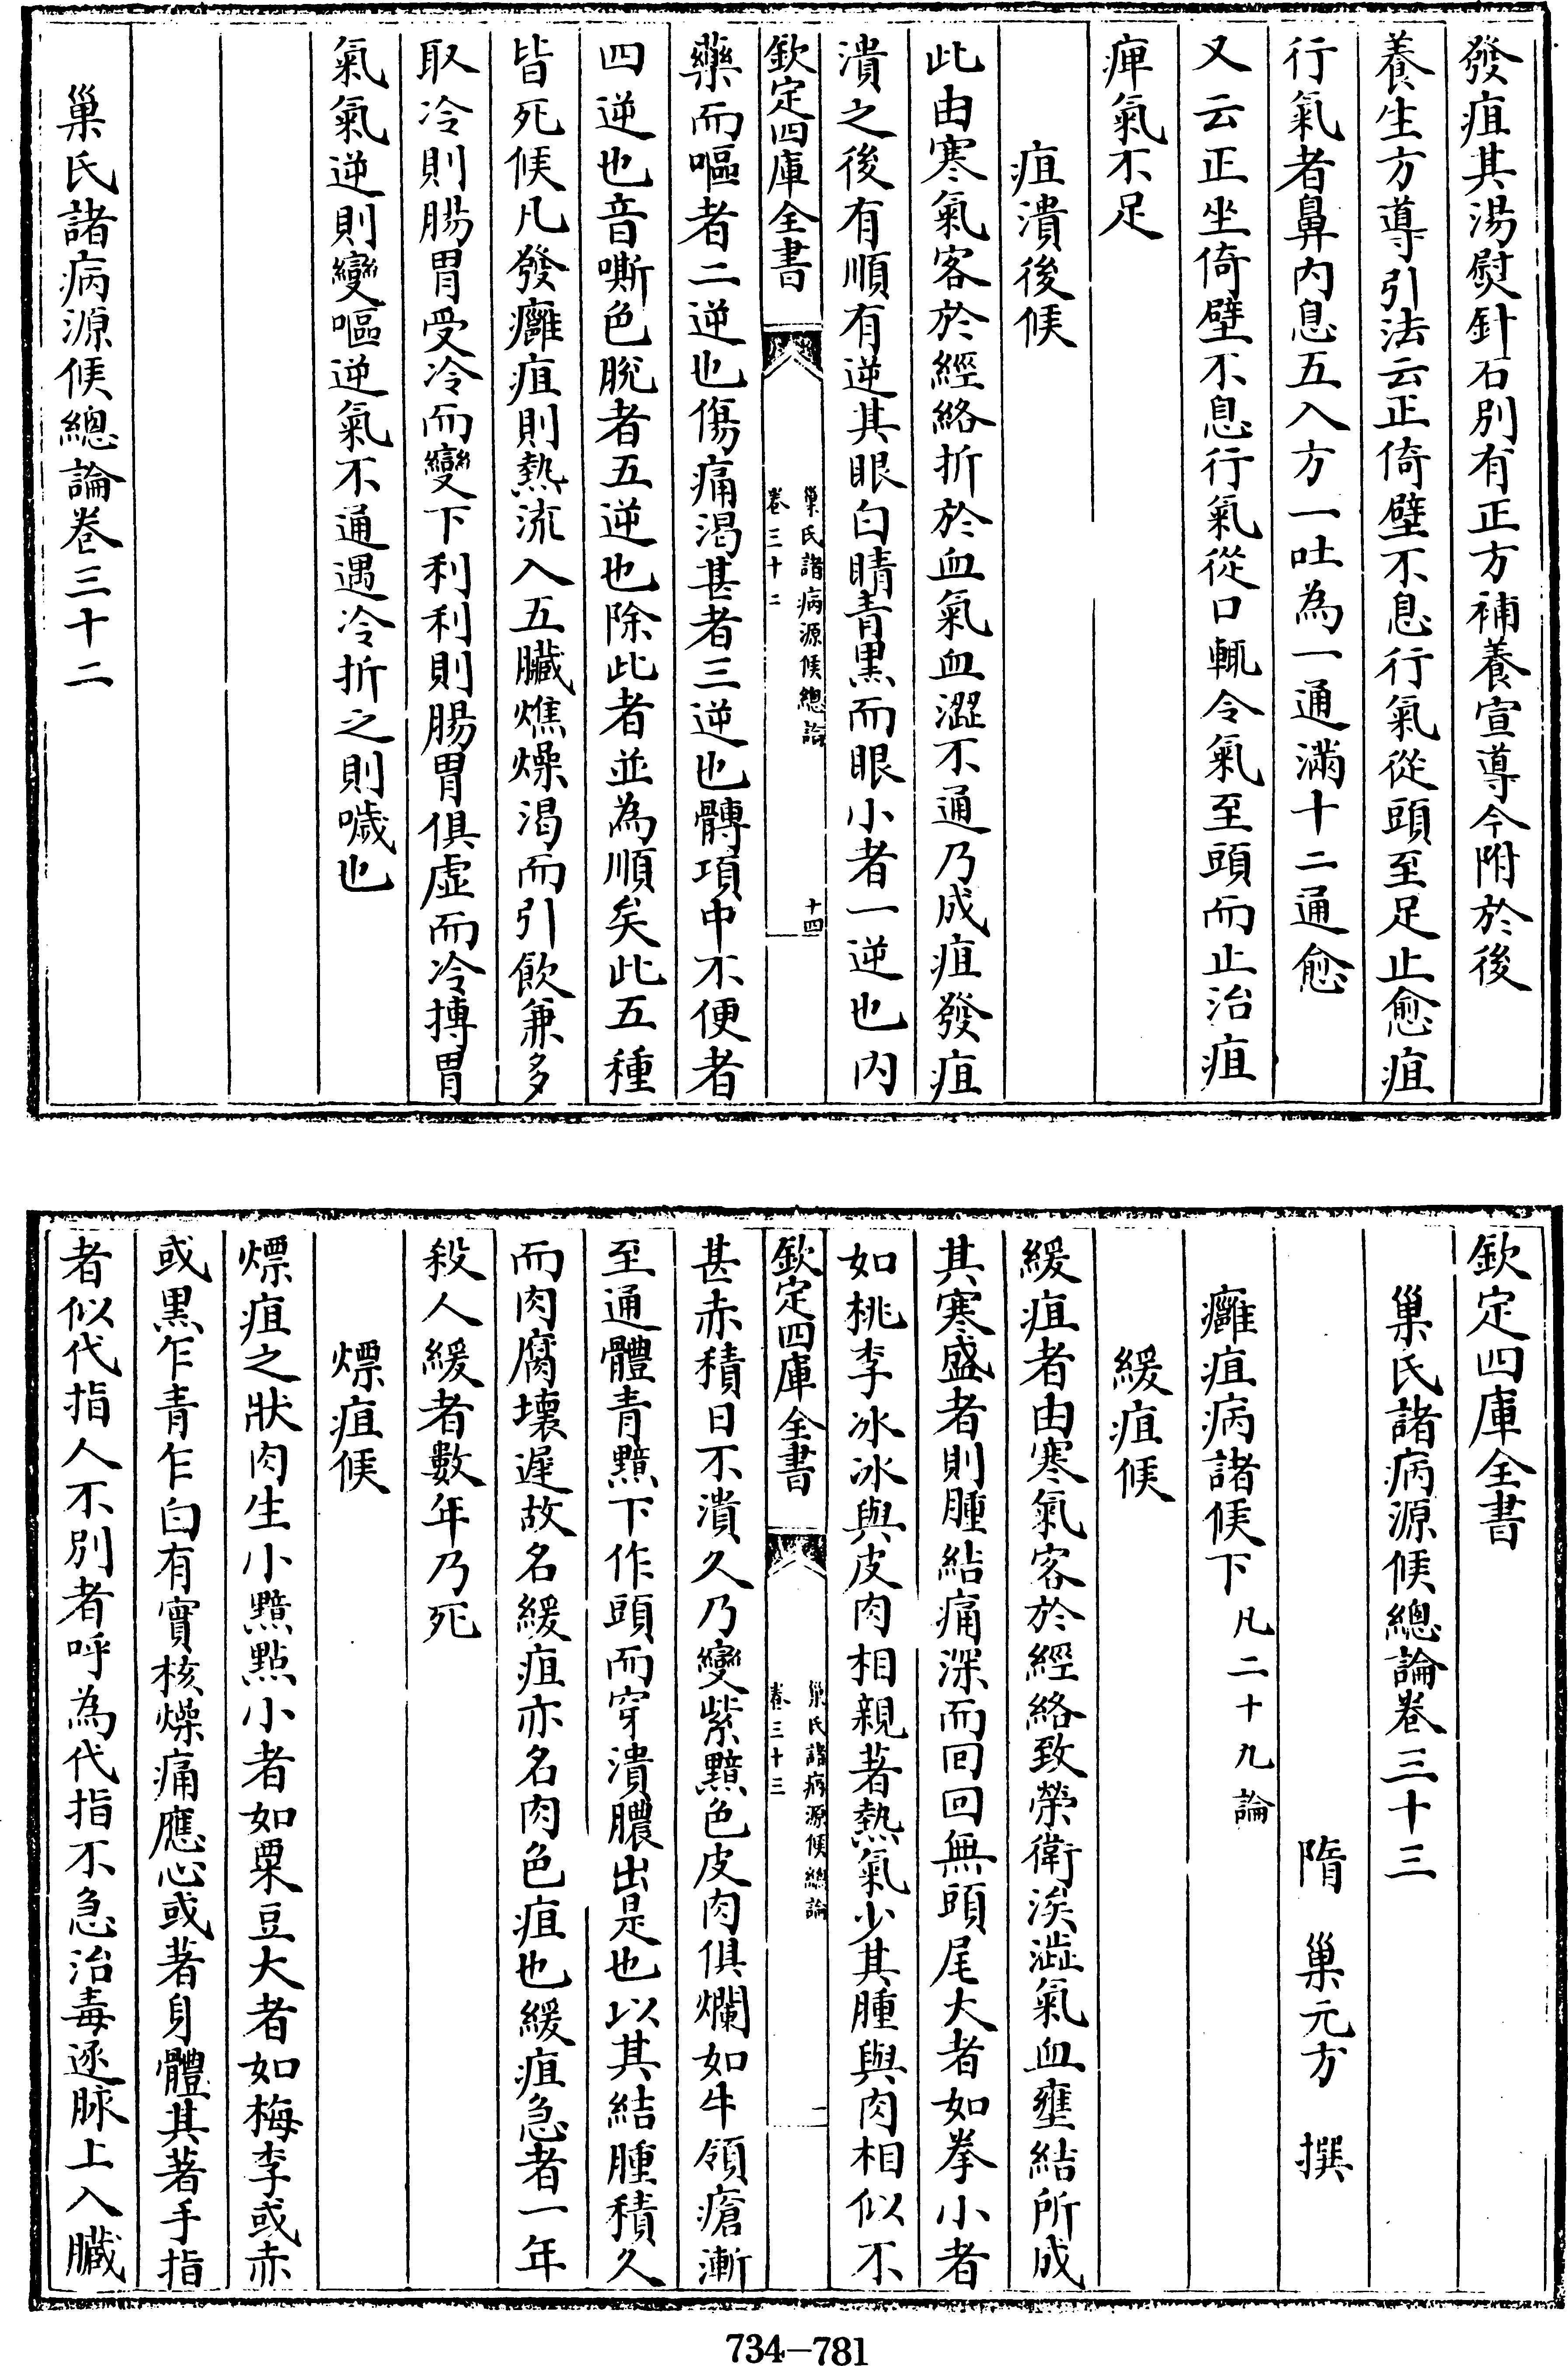 發疽其湯熨針石别有正方補養宣導今附於後
養生方導引法云正倚壁不息行氣從頭至足止愈疽
行氣者鼻内息五入方一吐為一通滿十二通愈
又云正坐倚壁不息行氣從口輒令氣至頭而止治疽
痺氣不足
疽潰後候
此由寒氣客於經絡折於血氣血澀不通乃成疽發疽
潰之後有順有逆其眼白睛青黒而眼小者一逆也内
欽定四庫全書
巢氏諸病源候總論
卷三十二
十四
藥而嘔者二逆也傷痛渴甚者三逆也膞項中不便者
四逆也音嘶色脫者五逆也除此者並為順矣此五種
皆死候凡發癰疽則熱流入五臟燋燥渴而引飲兼多
取冷則腸胃受冷而變下利利則腸胃俱虛而冷摶胃
氣氣逆則變嘔逆氣不通遇冷折之則噦也
巢氏諸病源候總論卷三十二
欽定四庫全書
巢氏諸病源候總論卷三十三
隋 巢元方 撰
癰疽病諸候下凡二十九論
緩疽候
緩疽者由寒氣客於經絡致榮衛涘澁氣血壅結所成
其寒盛者則腫結痛深而回回無頭尾大者如拳小者
如桃李冰冰與皮肉相親著熱氣少其腫與肉相似不
欽定四庫全書
巢氏諸病源候總論
卷三十三
一
甚赤積日不潰久乃變紫黯色皮肉俱爛如牛領瘡漸
至通體青黯下作頭而穿潰膿出是也以其結腫積久
而肉腐壞遲故名緩疽亦名肉色疽也緩疽急者一年
殺人緩者數年乃死
熛疽候
熛疽之狀肉生小黯點小者如粟豆大者如梅李或赤
或黒乍青乍白有實核燥痛應心或著身體其著手指
者似代指人不別者呼為代指不急治毒逐脉上入臟
734–781